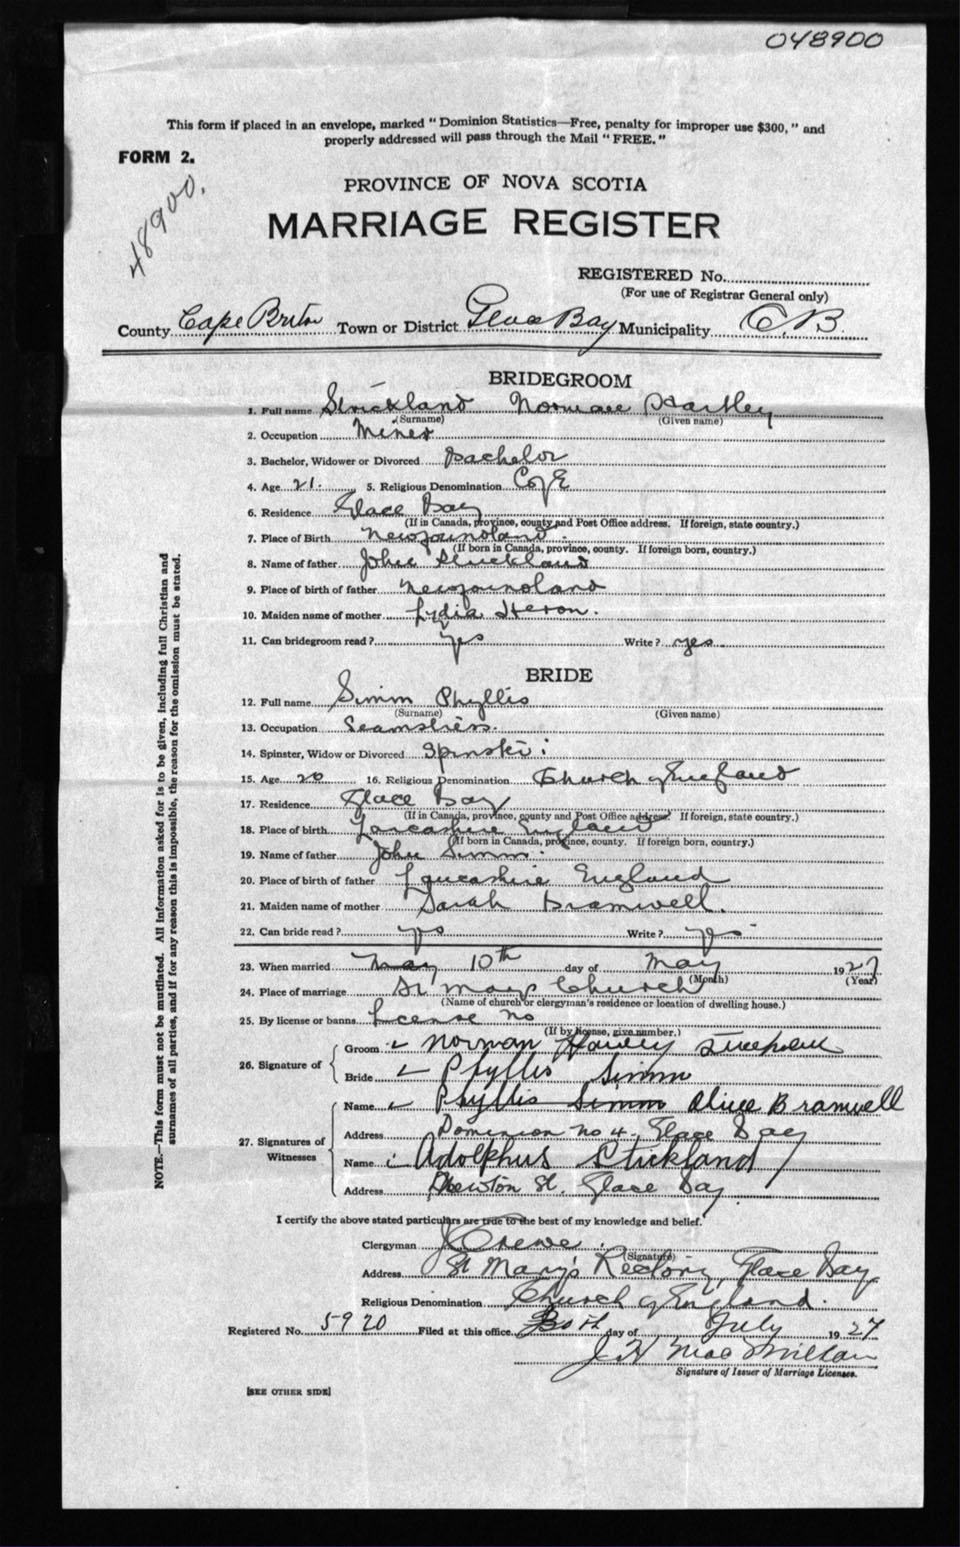 048900
This form if placed in an envelope, marked "Dominion Statistics—Free, penalty for improper use $300," and
properly addressed will pass through the Mail "FREE."
FORM 2.
48900.
PROVINCE OF NOVA SCOTIA
MARRIAGE REGISTER
REGISTERED No.
(For use of Registrar General only)
County Cape Breton Town or District Glace Bay Municipality C.B.
BRIDEGROOM
1. Full name Strickland Norman Hartley
(Surname) (Given name)
2. Occupation Miner
3. Bachelor, Widower or Divorced Bachelor
4. Age 21. 5. Religious Denomination C of E
6. Residence Glace Bay
(If in Canada, province, county and Post Office address. If foreign, state country.)
7. Place of Birth Newfoundland.
(If born in Canada, province, county. If foreign born, country.)
8. Name of father John Strickland
9. Place of birth of father Newfoundland
10. Maiden name of mother Lydia Heron.
11. Can bridegroom read? Yes Write? yes
BRIDE
12. Full name Simm Phyllis
(Surname) (Given name)
13. Occupation Seamstress.
14. Spinster, Widow or Divorced Spinster
15. Age 20 16. Religious Denomination Church of England
17. Residence Glace Bay
(If in Canada, province, county and Post Office address. If foreign, state country.)
18. Place of birth Lancashire England
(If born in Canada, province, county. If foreign born, country.)
19. Name of father John Simm.
20. Place of birth of father Lancashire England
21. Maiden name of mother Sarah Bramwell.
22. Can bride read? yes Write? yes
23. When married May 10th day of May 1927
(Month) (Year)
24. Place of marriage St Marys Church
(Name of church or clergyman's residence or location of dwelling house.)
25. By license or banns License No
(If by license, give number.)
26. Signature of
Groom Norman Hartley
Bride Phyllis Simm
27. Signatures of Witnesses
Name Phyllis Simm Alice Bramwell
Address Dominion No 4. Glace Bay
Name Adolphus Stickland
Address St. Glace Bay
I certify the above stated particulars are true to the best of my knowledge and belief.
Clergyman J Crewe
(Signature)
Address St Mary's Rectory, Glace Bay
Religious Denomination Church of England.
Registered No. 5920 Filed at this office 30th day of July 1927
J H MacMillan
Signature of Issuer of Marriage Licenses.
[SEE OTHER SIDE]
NOTE.—This form must not be mutilated. All information asked for is to be given, including full Christian and
surnames of all parties, and if for any reason this is impossible, the reason for the omission must be stated.